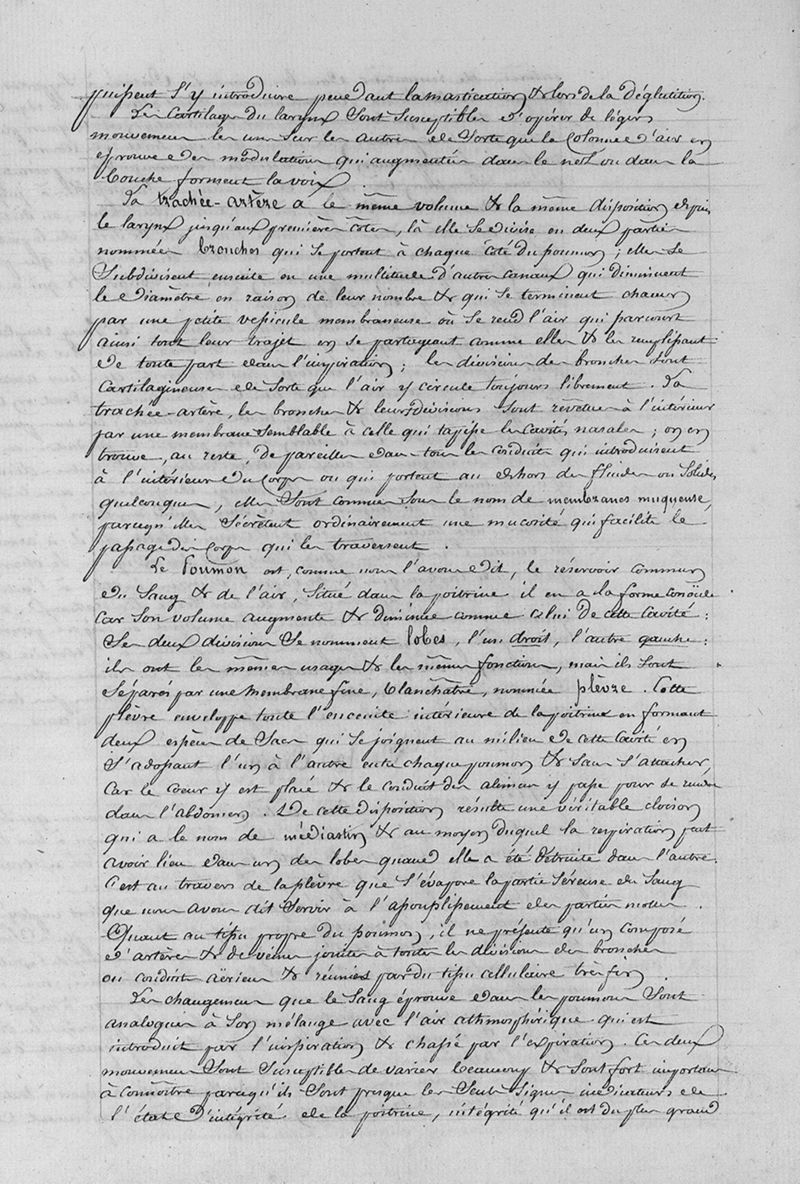 puissent s'y introduire pendant la mastication & lors de la déglutition.
Les cartilages du larynx sont susceptibles d'opérer de légers
mouvemens les uns sur les autres de sorte que la colonne d'air en
éprouve des modulations qui augmentées dans le nez ou dans la
bouche forment la voix.
La trachée-artère a le même volume & la même disposition depuis
le larynx jusqu'aux premières côtes, là elle se divise en deux parties
nommées bronches qui se portent à chaque côté du poumon ; elles se
subdivisent ensuite en une multitude d'autres canaux qui diminuent
le diamètre en raison de leur nombre & qui se terminent chacun
par une petite vésicule membraneuse où se rend l'air qui parcourt
ainsi tout leur trajet en se partageant comme elles & les remplissant
de toute part dans l'inspiration ; les divisions des bronches sont
cartilagineuses de sorte que l'air y circule toujours librement. La
trachée-artère, les bronches & leurs divisions sont revêtues à l'intérieur
par une membrane semblable à celle qui tapisse les cavités nasales ; on en
trouve, au reste, de pareilles dans tous les conduits qui introduisent
à l'intérieur du corps ou qui portent au dehors des fluides ou solides
quelconques, elles sont connues sous le nom de membranes muqueuses,
parcequ'elles sécrètent ordinairement une mucosité qui facilite le
passage des corps qui les traversent.
Le Poumon est, comme nous l'avons dit, le réservoir commun
du sang & de l'air, situé dans la poitrine il en a la forme conoïde
car son volume augmente & diminue comme celui de cette cavité :
Ses deux divisions se nomment lobes, l'un droit, l'autre gauche :
ils ont les mêmes usages & les mêmes fonctions, mais ils sont
séparés par une membrane fine, blanchâtre, nommée plèvre. Cette
plèvre enveloppe toute l'enceinte intérieure de la poitrine en formant
deux espèces de sacs qui se joignent au milieu de cette cavité en
s'adossant l'un à l'autre entre chaque poumon & sans s'attacher,
car le cœur y est placé & le conduit des alimens y passe pour se rendre
dans l'abdomen. De cette disposition résulte une véritable cloison
qui a le nom de médiastin & au moyen duquel la respiration peut
avoir lieu dans un des lobes quand elle a été détruite dans l'autre.
C'est au travers de la plèvre que s'évapore la partie séreuse du sang
que nous avons dit servir à l'assouplissement des parties molles.
Quant au tissu propre du poumon, il ne présente qu'un composé
d'artères & de veines jointes à toutes les divisions des bronches
ou conduits aériens & réunies par du tissu cellulaire très fin.
Les changemens que le sang éprouve dans les poumons sont
analogues à son mélange avec l'air athmosphérique qui est
introduit par l'inspiration & chassé par l'expiration. Ces deux
mouvemens sont susceptibles de varier beaucoup & sont fort importans
à connoître parcequ'ils sont presque les seuls signes indicateurs de
l'état d'intégrité de la poitrine, intégrité qu'il est du plus grand